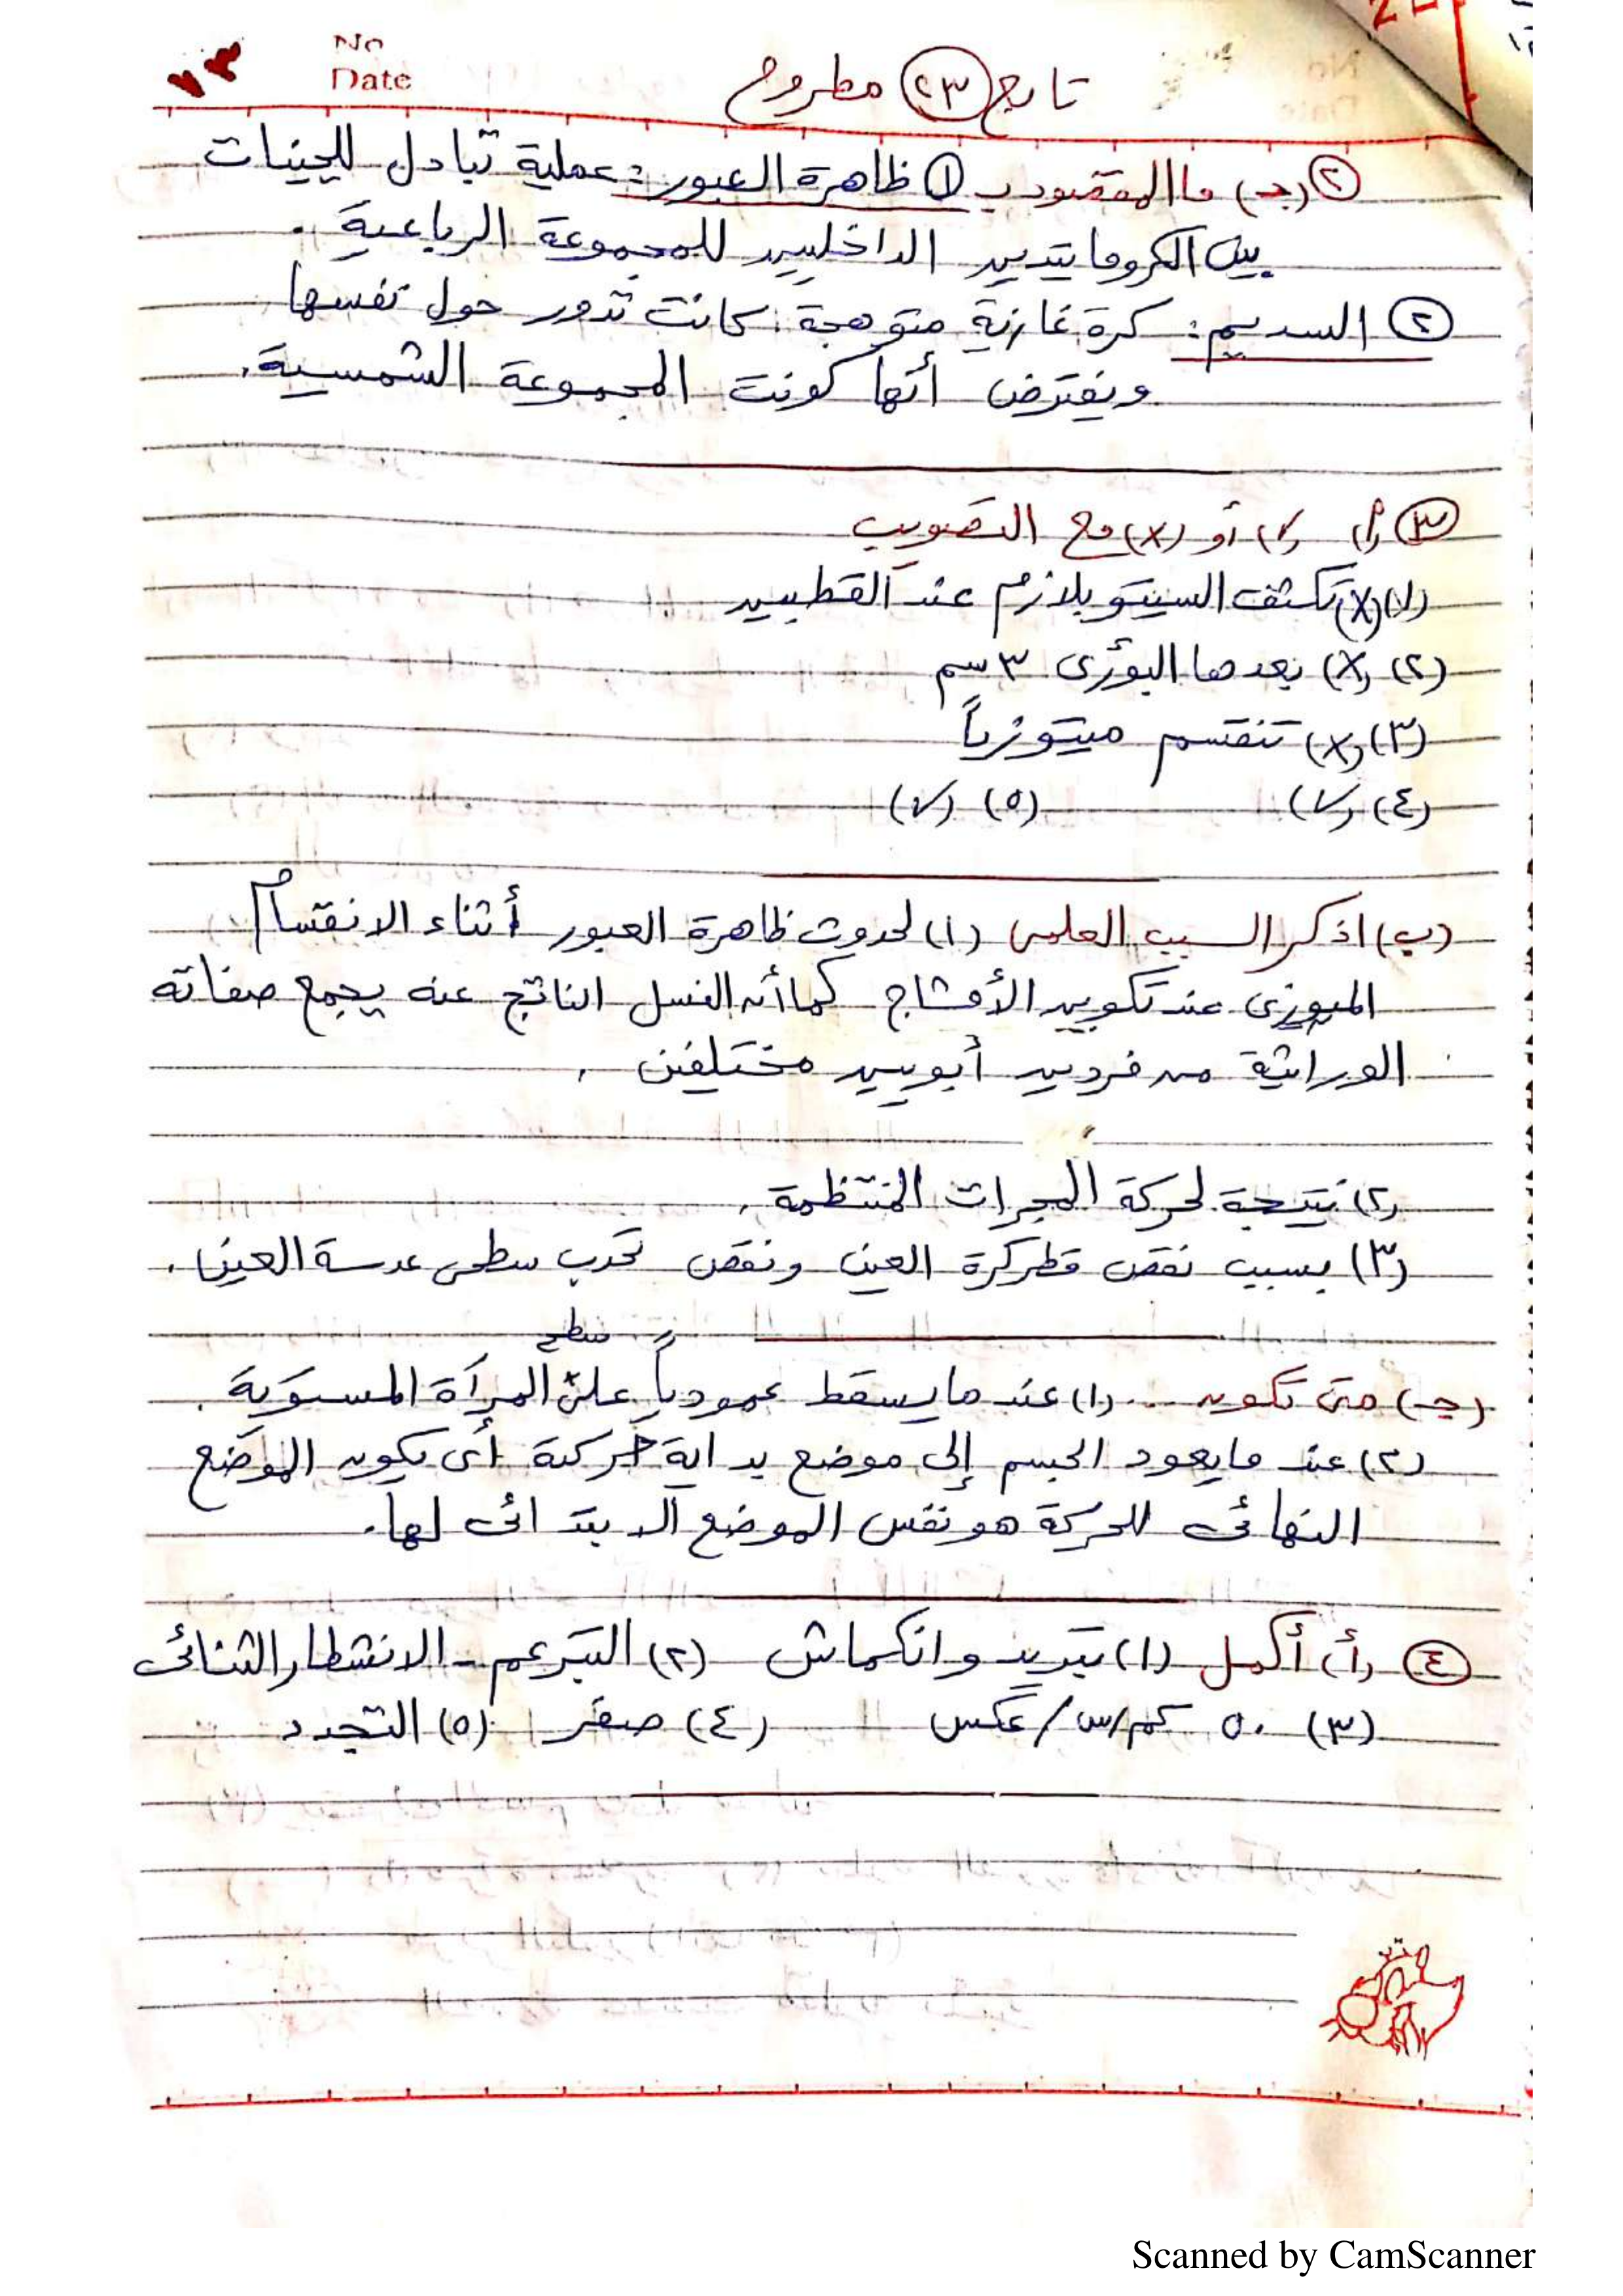 No
Date
تابع (٢٣) مطروح
(٢) (جـ) ما المقصود بـ (١) ظاهرة العبور : عملية تبادل للجينات
بين الكروماتيدين الداخليين للمجموعة الرباعية .
(٢) السديم : كرة غازية متوهجة كانت تدور حول نفسها
ويفترض أنها كونت المجموعة الشمسية .
(٣) (أ) (✓) أو (x) مع التصويب
(١) (x) تكثف السيتوبلازم عند القطبين
(٢) (x) بعدها البؤرى ٣ سم
(٣) (x) تنقسم ميتوزياً
(٤) (✓) (٥) (✓)
(ب) اذكر السبب العلمى (١) لحدوث ظاهرة العبور أثناء الانقسام
الميوزى عند تكوين الأمشاج كما أن النسل الناتج عنه يجمع صفاته
الوراثية من فردين أبويين مختلفين .
(٢) نتيجة لحركة المجرات المنتظمة .
(٣) بسبب نقص قطر كرة العين ونقص تحدب سطحى عدسة العين .
(جـ) متى تكون ... (١) عندما يسقط عمودياً على سطح المرآة المستوية .
(٢) عندما يعود الجسم إلى موضع بداية حركته أى يكون الموضع
النهائى للحركة هو نفس الموضع الابتدائى لها .
(٤) (أ) أكمل (١) تبريد وانكماش (٢) التبرعم - الانشطار الثنائى
(٣) ٥٠ كم/س / عكس (٤) صفر (٥) التجدد
Scanned by CamScanner